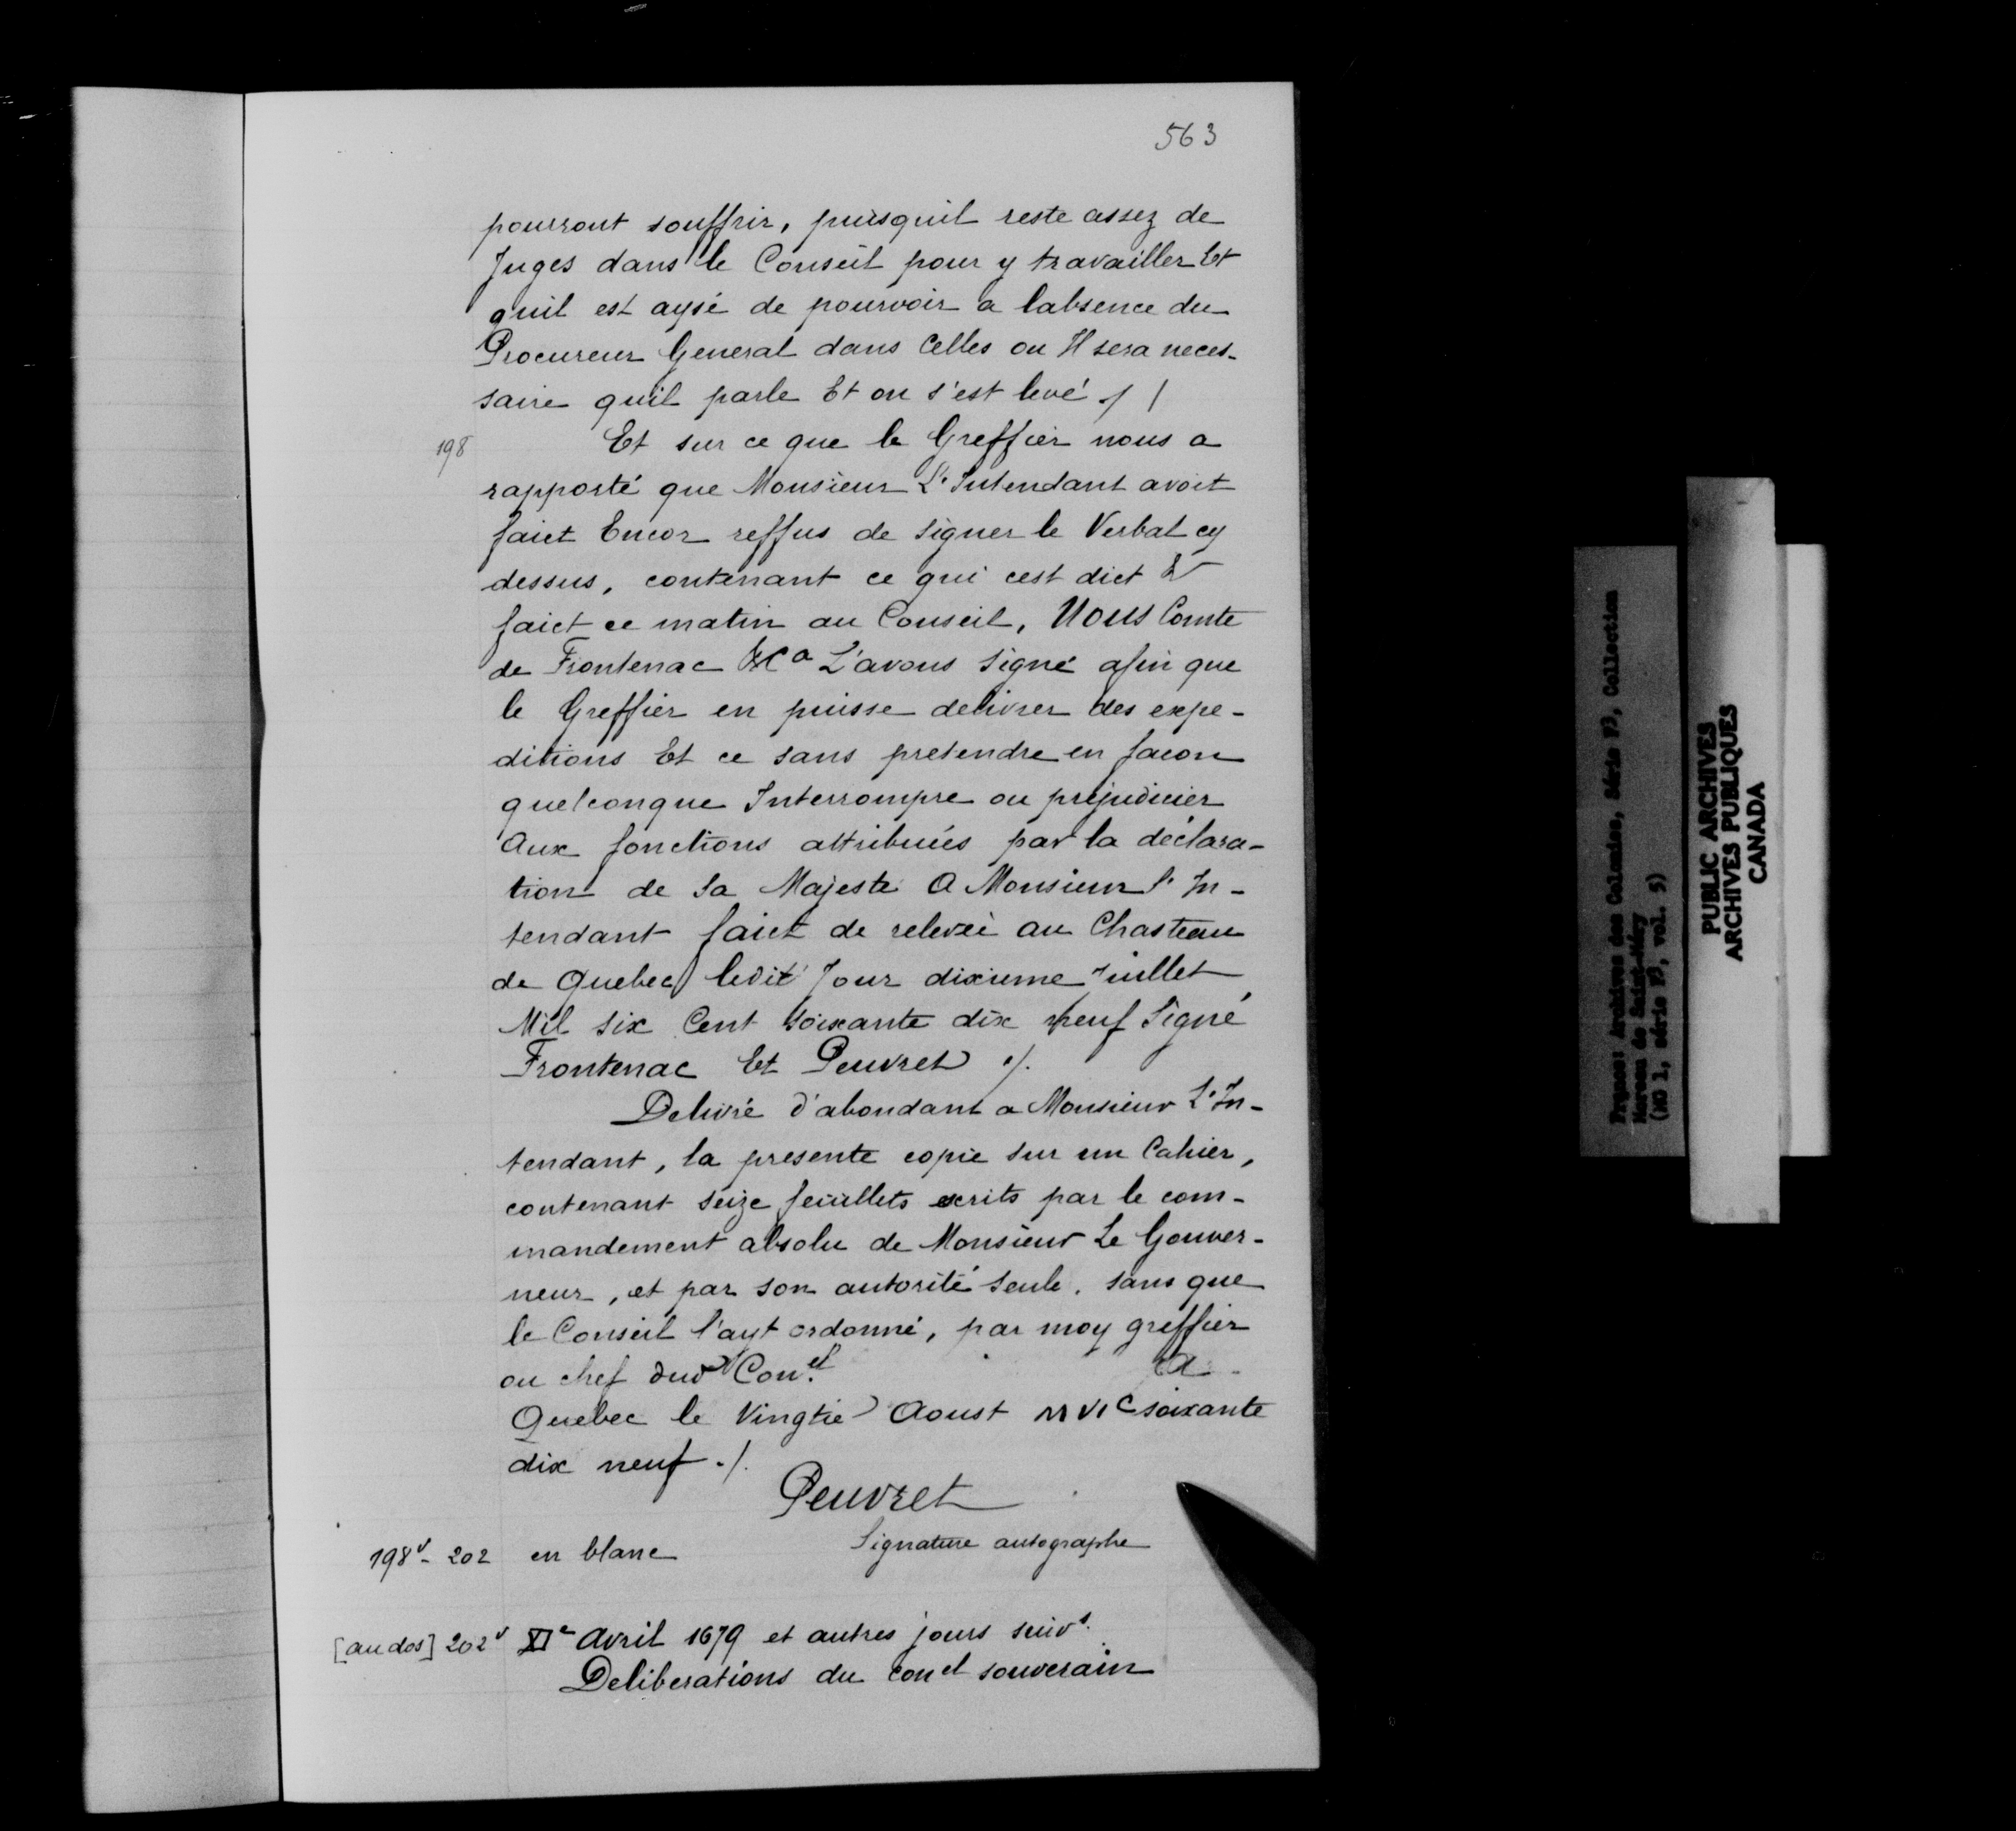 563
pourront souffrir, puisquil reste assez de
Juges dans le Conseil pour y travailler Et
quil est aysé de pourvoir a labsence du
Procureur General dans Celles ou Il sera neces-
saire quil parle Et on s'est levé ./ /
198 Et sur ce que le Greffier nous a
rapporté que Monsieur L'Intendant avoit
faict Encor reffus de signer le Verbal cy
dessus, contenant ce qui cest dict &
faict ce matin au Conseil, NOUS Comte
de Frontenac &Ca L'avons signé afin que
le Greffier en puisse delivrer des expe-
ditions Et ce sans pretendre en facon
quelconque Interrompre ou prejudicier
Aux fonctions attribuées par la déclara-
tion de Sa Majesté A Monsieur l'In-
tendant faict de relevée au Chasteau
de Quebec ledit Jour dixieme Juillet
Mil six Cent soixante dix neuf Signé,
Frontenac Et Peuvret ./.
Delivré d'abondant a Monsieur L'In-
tendant, la presente copie sur un Cahier,
contenant seize feuillets escrits par le com-
mandement absolu de Monsieur Le Gouver-
neur, et par son autorité seule, sans que
le Conseil l'ayt ordonné, par moy greffier
au chef dud Conel. A
Quebec le Vingtie Aoust MVIC soixante
dix neuf ./.
Peuvret
Signature autographe
198v - 202 en blanc
[au dos] 202v XIe Avril 1679 et autres jours suivs.
Deliberations du conel souverain
France: Archives des Colonies, Série F3, Collection
Moreau de Saint-Méry
(MG 1, série F3, vol. 5)
PUBLIC ARCHIVES
ARCHIVES PUBLIQUES
CANADA